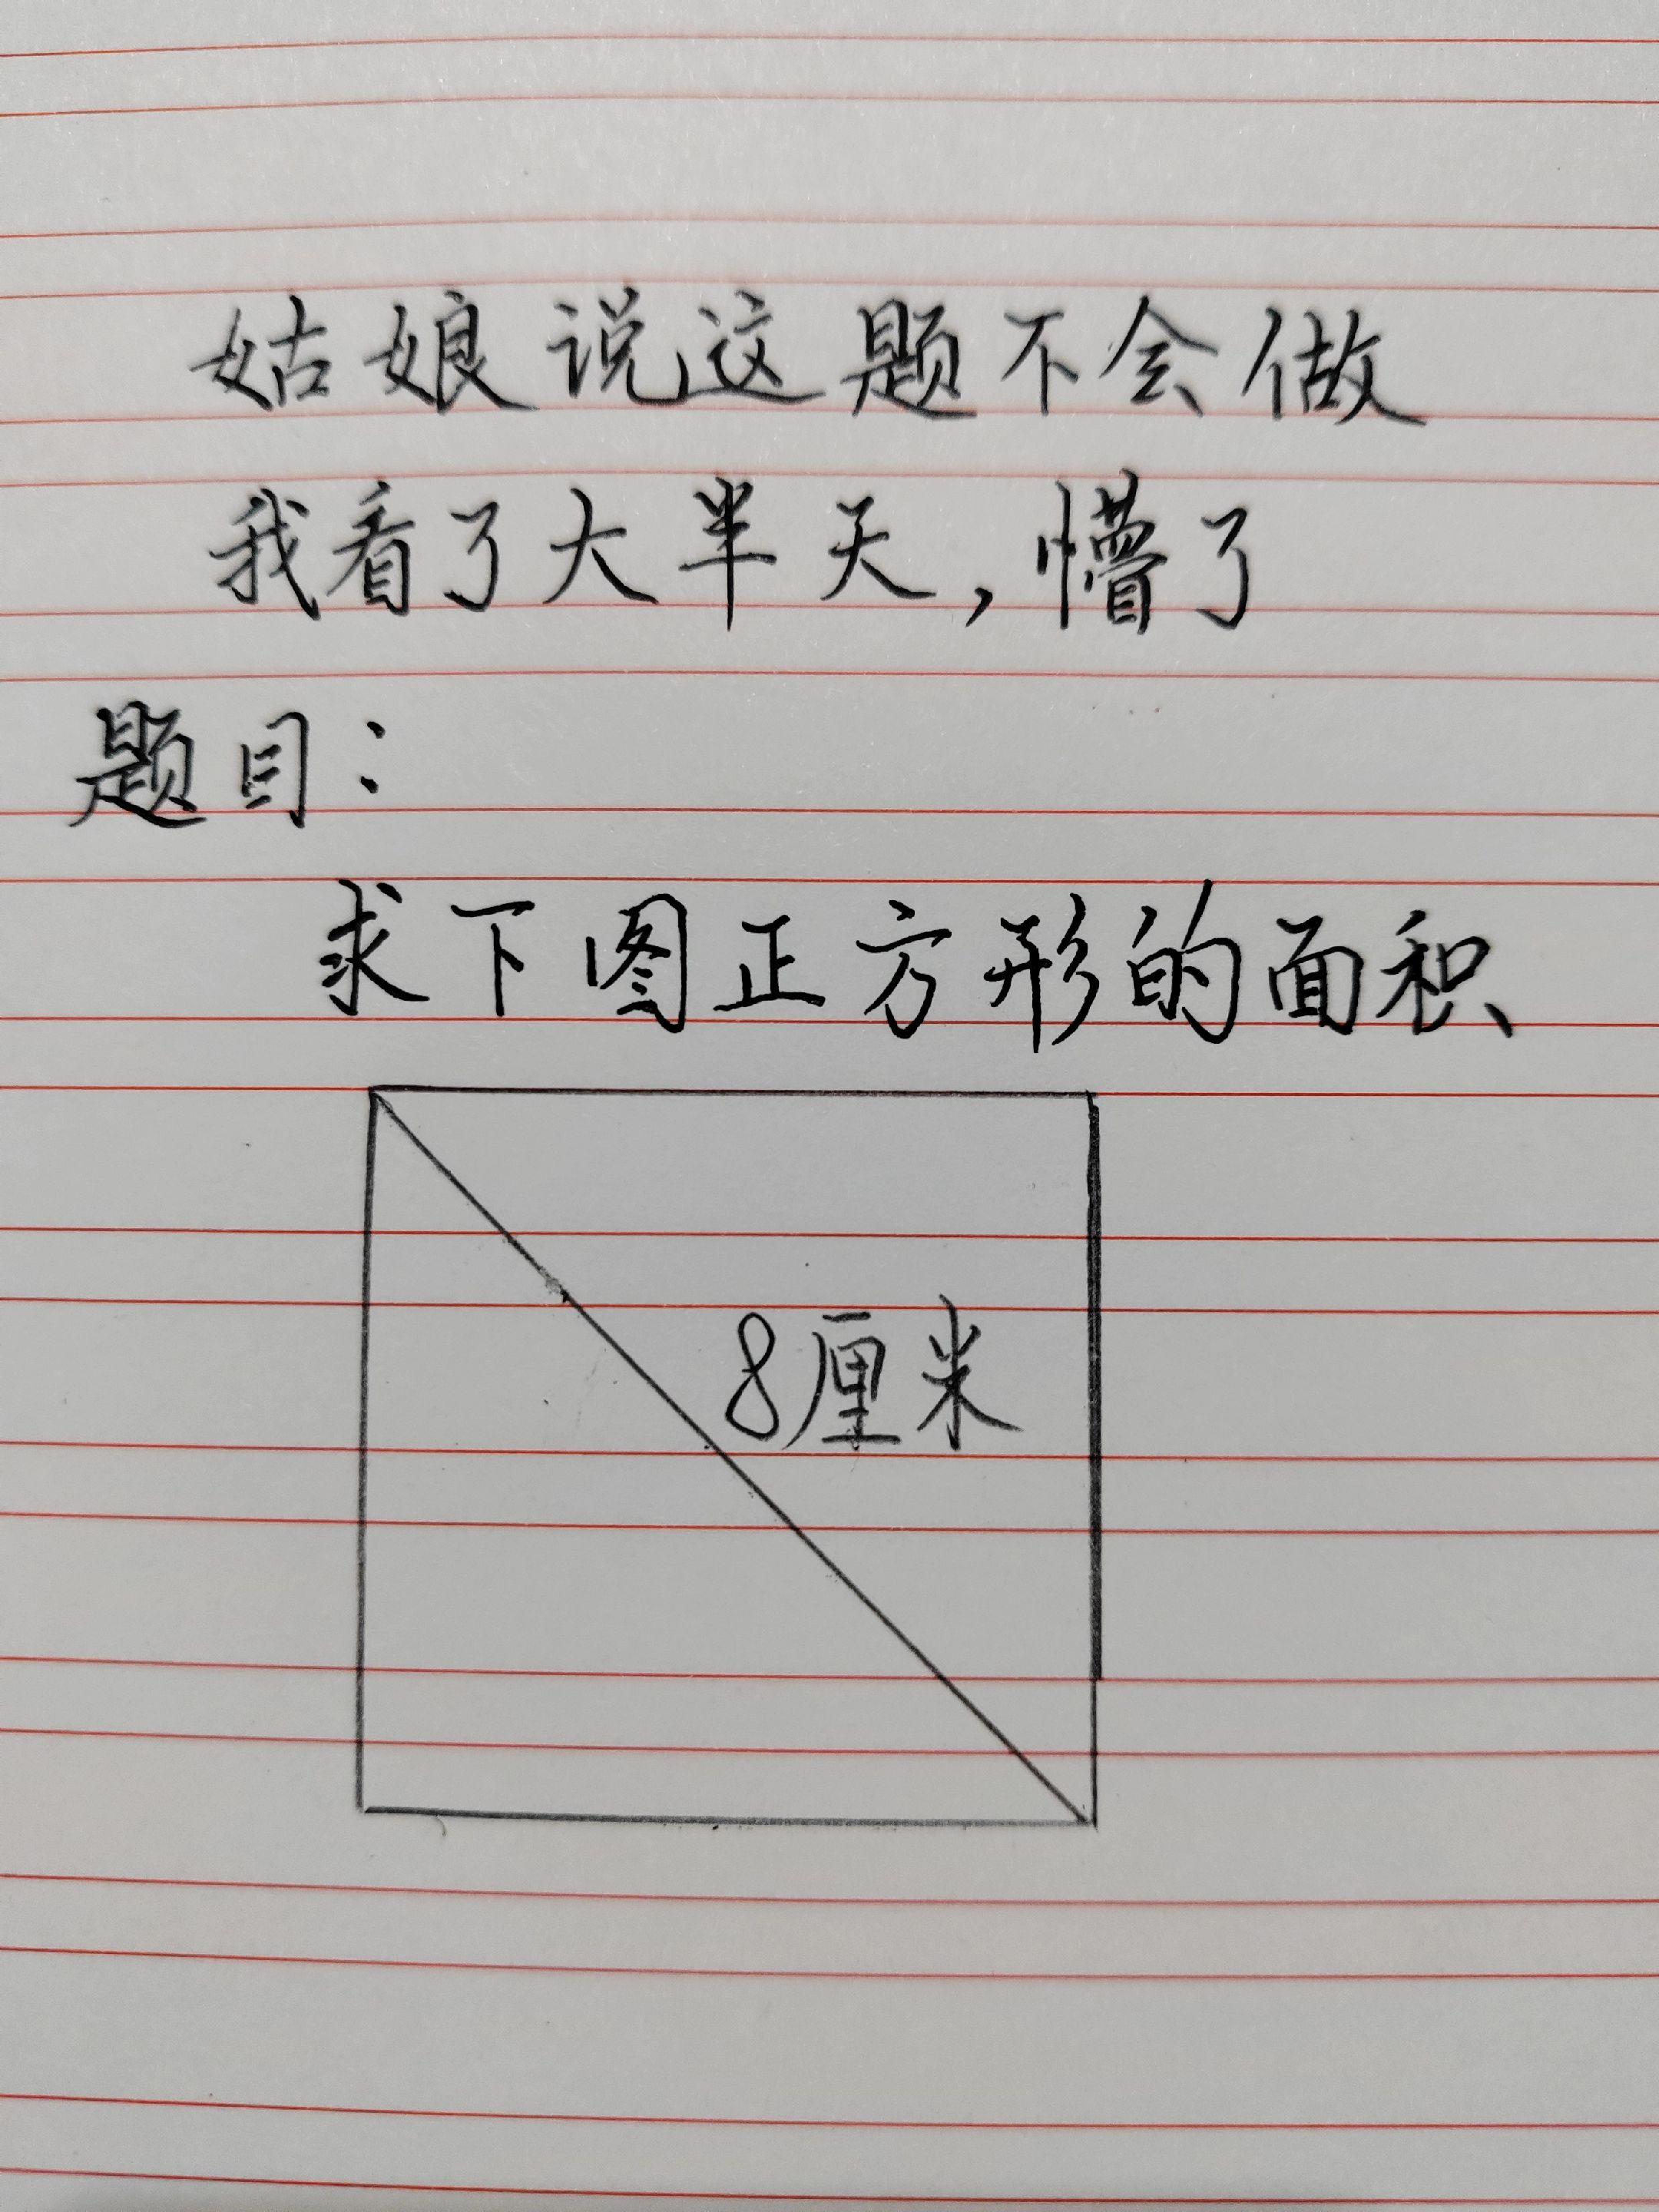 姑娘说这题不会做
我看了大半天,懵了
题目:
求下图正方形的面积
8厘米